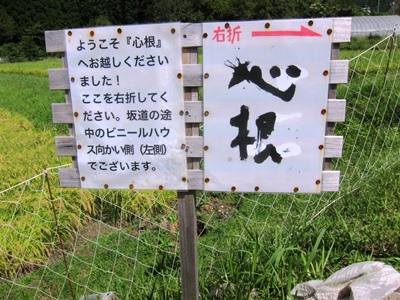 ようこそ『心根』
へお越しください
ました！
ここを右折してく
ださい。坂道の途
中のビニールハウ
ス向かい側（左側）
でございます。
右折
心
根